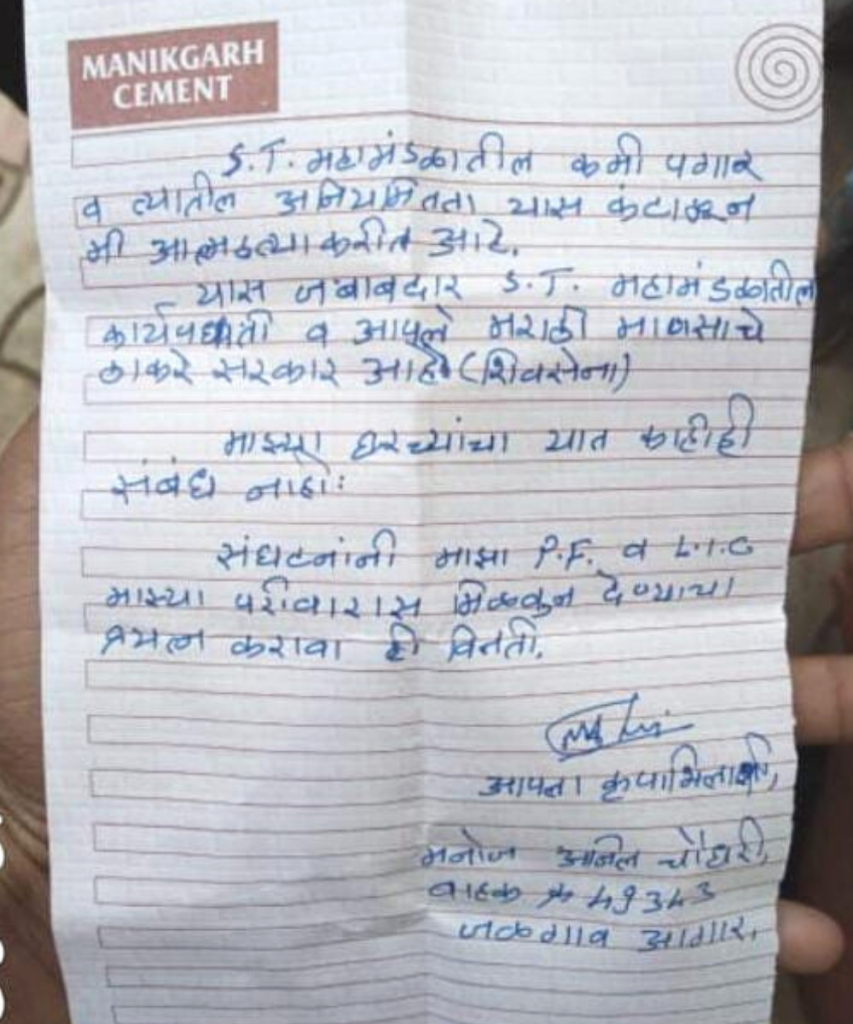 MANIKGARH
CEMENT
S.T. महामंडळातील कमी पगार
व त्यातील अनियमितता यास कंटाळून
मी आत्महत्या करीत आहे.
यास जबाबदार S.T. महामंडळातील
कार्यपध्दती व आपले मराठी माणसाचे
ठाकरे सरकार आहे (शिवसेना)
माझ्या घरच्यांचा यात काहीही
संबंध नाही:
संघटनांनी माझा P.F. व L.I.C
माझ्या परीवारास मिळवुन देण्याचा
प्रयत्न करावा ही विनंती.
आपला कृपाभिलाषी,
मनोज अनिल चौधरी,
वाहक क्र 49343
जळगाव आगार.